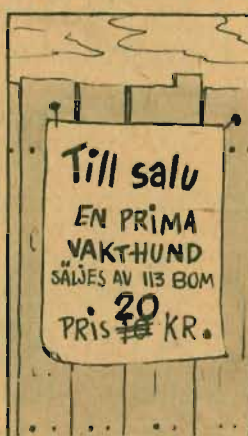 Till salu
EN PRIMA
VAKTHUND
SÄLJES AV 113 BOM
20
PRIS 10 KR.